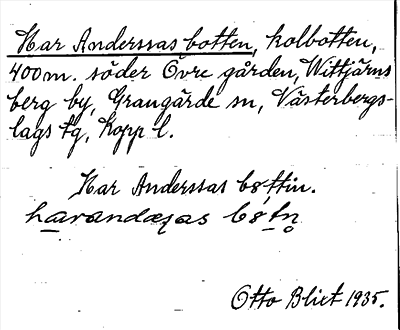 Har Anderssas botten, kolbotten,
400 m. söder Övre gården, Wittjärns
berg by, Grangärde sn, Västerbergs-
lags tg, Kopp l.
Har Anderssas bȯttin.
harandasas
Otto Blixt 1935.